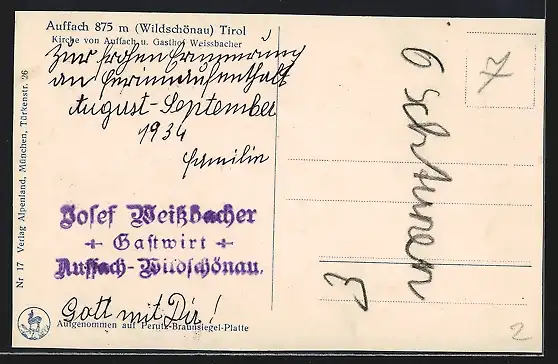 Auffach 875 m (Wildschönau) Tirol
Kirche von Auffach u. Gasthof Weissbacher
Zur frohen Erinnerung
an Ferienaufenthalt
August-September
1934
Familie
Josef Weißbacher
+ Gastwirt +
Auffach-Wildschönau.
Gott mit Dir!
Aufgenommen auf Perutz-Braunsiegel-Platte
Nr 17 Verlag Alpenland, München, Türkenstr. 26
6
3
2